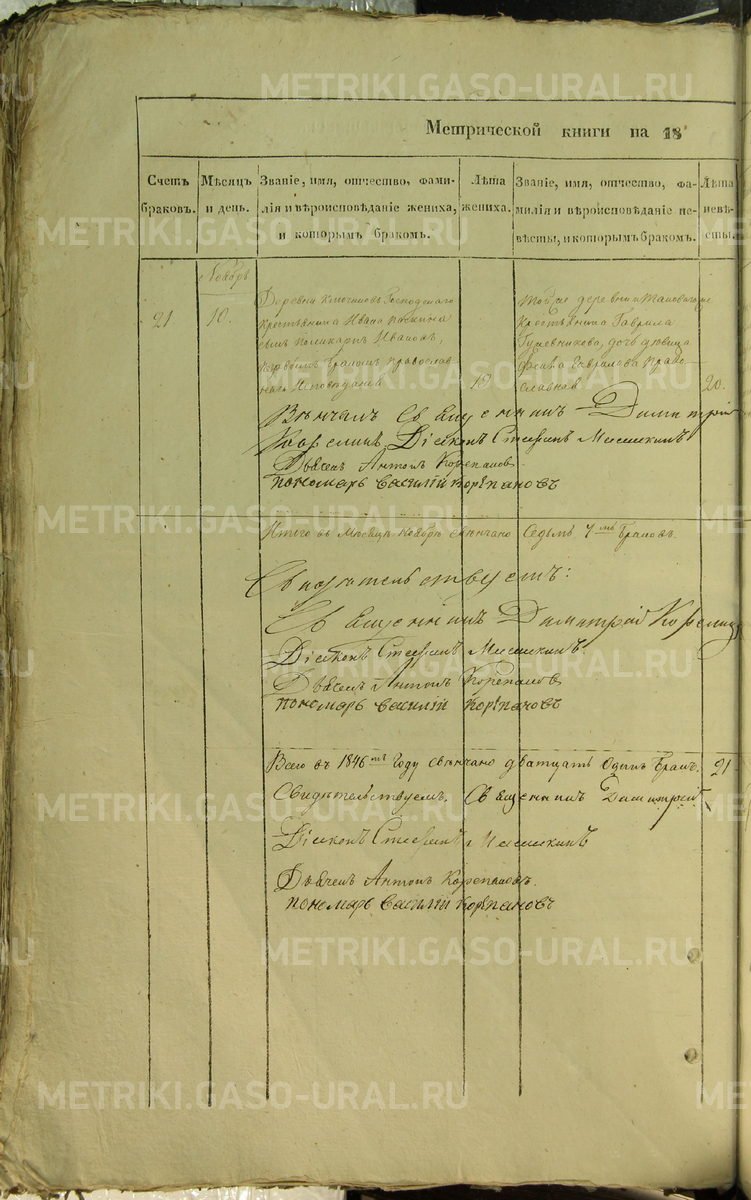 METRIKI.GASO-URAL.RU
Метрической книги на 18
Счетъ браковъ.
Мѣсяцъ и день.
Званіе, имя, отчество, фами-
лія и вѣроисповѣданіе жениха,
и которымъ бракомъ.
Лѣта жениха.
Званіе, имя, отчество, фа-
милія и вѣроисповѣданіе не-
вѣсты, и которымъ бракомъ.
Лѣта невѣ-
сты.
Ноябрь
21
10.
Деревни Господскаго
Крестьянина Ивана
сынъ Поликарпъ Ивановъ,
первымъ бракомъ Православ
наго исповеданія
Тойже деревни
Крестьянина Гаврила
дочь девица
Гаврилова Право-
славная
20.
Вѣнчалъ Священникъ Димитрій
Діаконъ Стефанъ Мишкинъ
Дьячекъ Антонъ Корепановъ
пономарь Василій Корѣпановъ
Итого въ Месяце Ноябре свенчано Седьмь 7мь Браковъ.
Свидѣтельствуемъ:
Священникъ Димитрій
Діаконъ Стефанъ Мишкинъ.
Дьячекъ Антонъ Корепановъ
пономарь Василій Корѣпановъ
Всего въ 1846мъ Году свенчано дватцать Одинъ Бракъ. 21
Свидѣтельствуемъ, Священникъ Димитрій
Діаконъ Стефанъ Мишкинъ
Дьячекъ Антонъ Корепановъ.
пономарь Василій Корѣпановъ